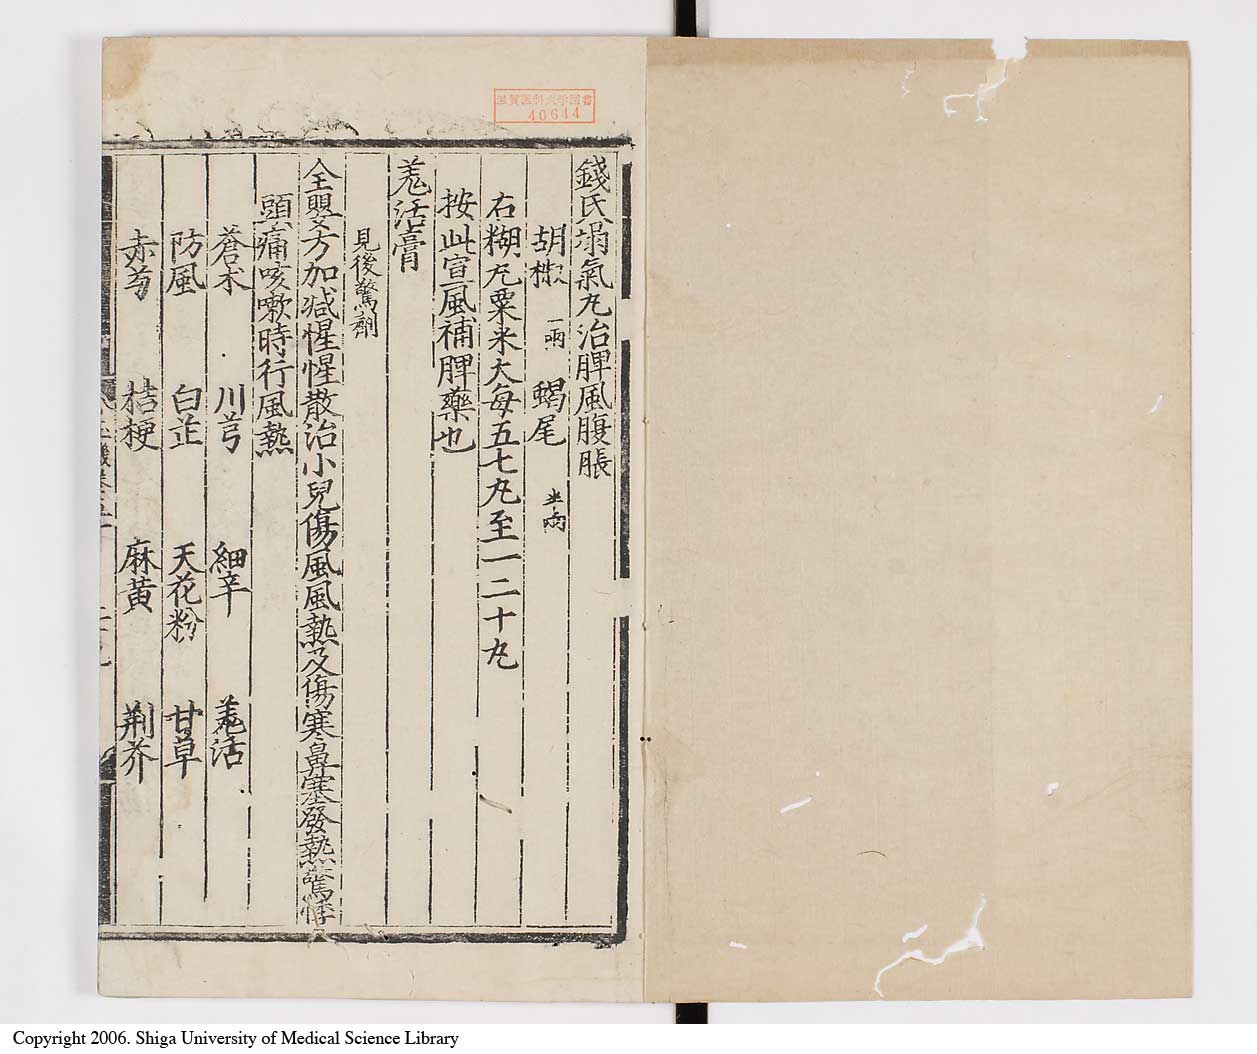 錢氏塌氣九治脾風腹脹
胡椒 一兩 蝎尾 半兩
右糊九粟米大每五七九至一二十九
按此宣風補脾藥也
羗活膏
見後驚劑
全嬰方加减惺惺散治小兒傷風風熱及傷寒鼻塞發熱驚悸
頭痛咳嗽時行風熱
蒼朮 川芎 細辛 羗活
防風 白芷 天花粉 甘草
赤芍 桔梗 麻黃 荆芥
滋賀医科大学図書
40644
Copyright 2006. Shiga University of Medical Science Library